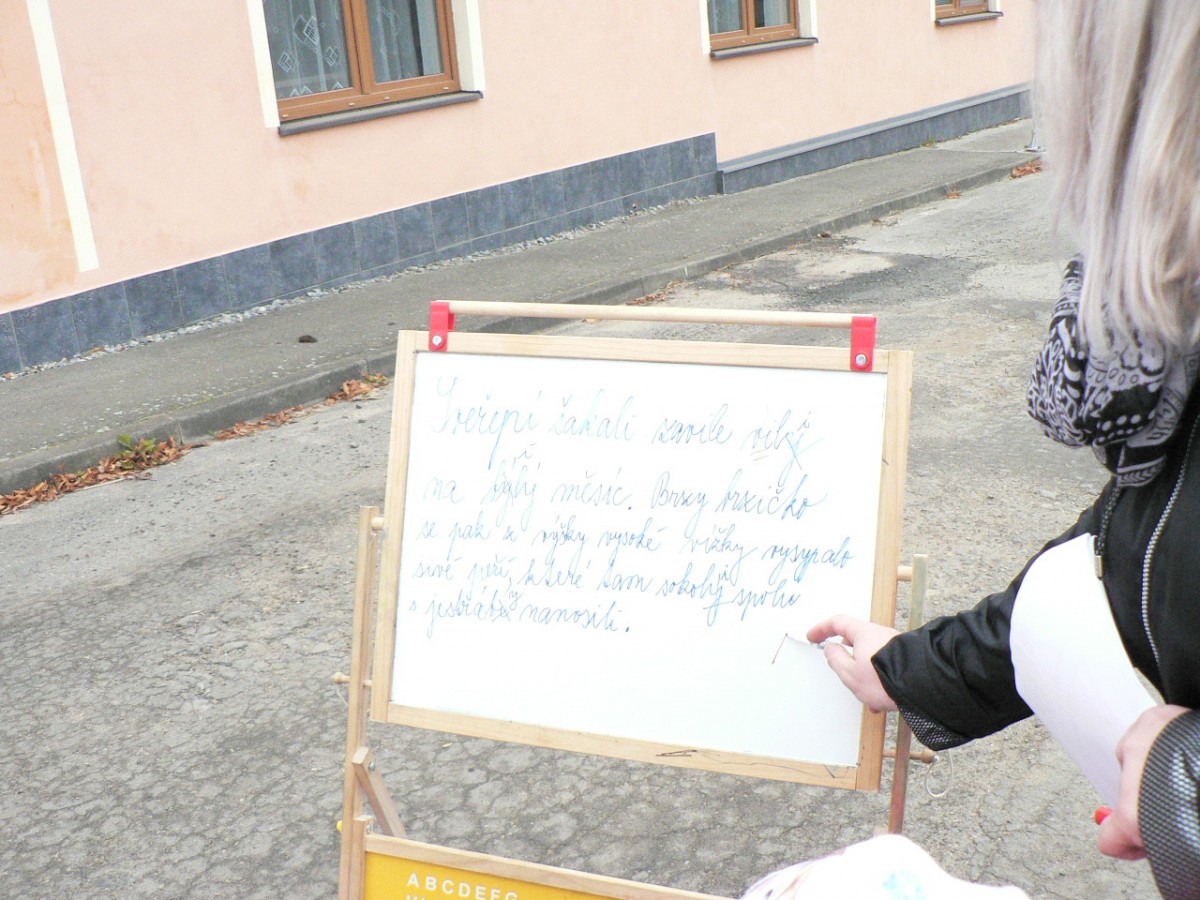 Sveřepí šakali zavile vyli
na bílý měsíc. Brzy brzičko
se pak z výšky vysoké vížky vysypalo
sivé peří, které tam sokoli spolu
s jestřáby nanosili.
ABCDEFG